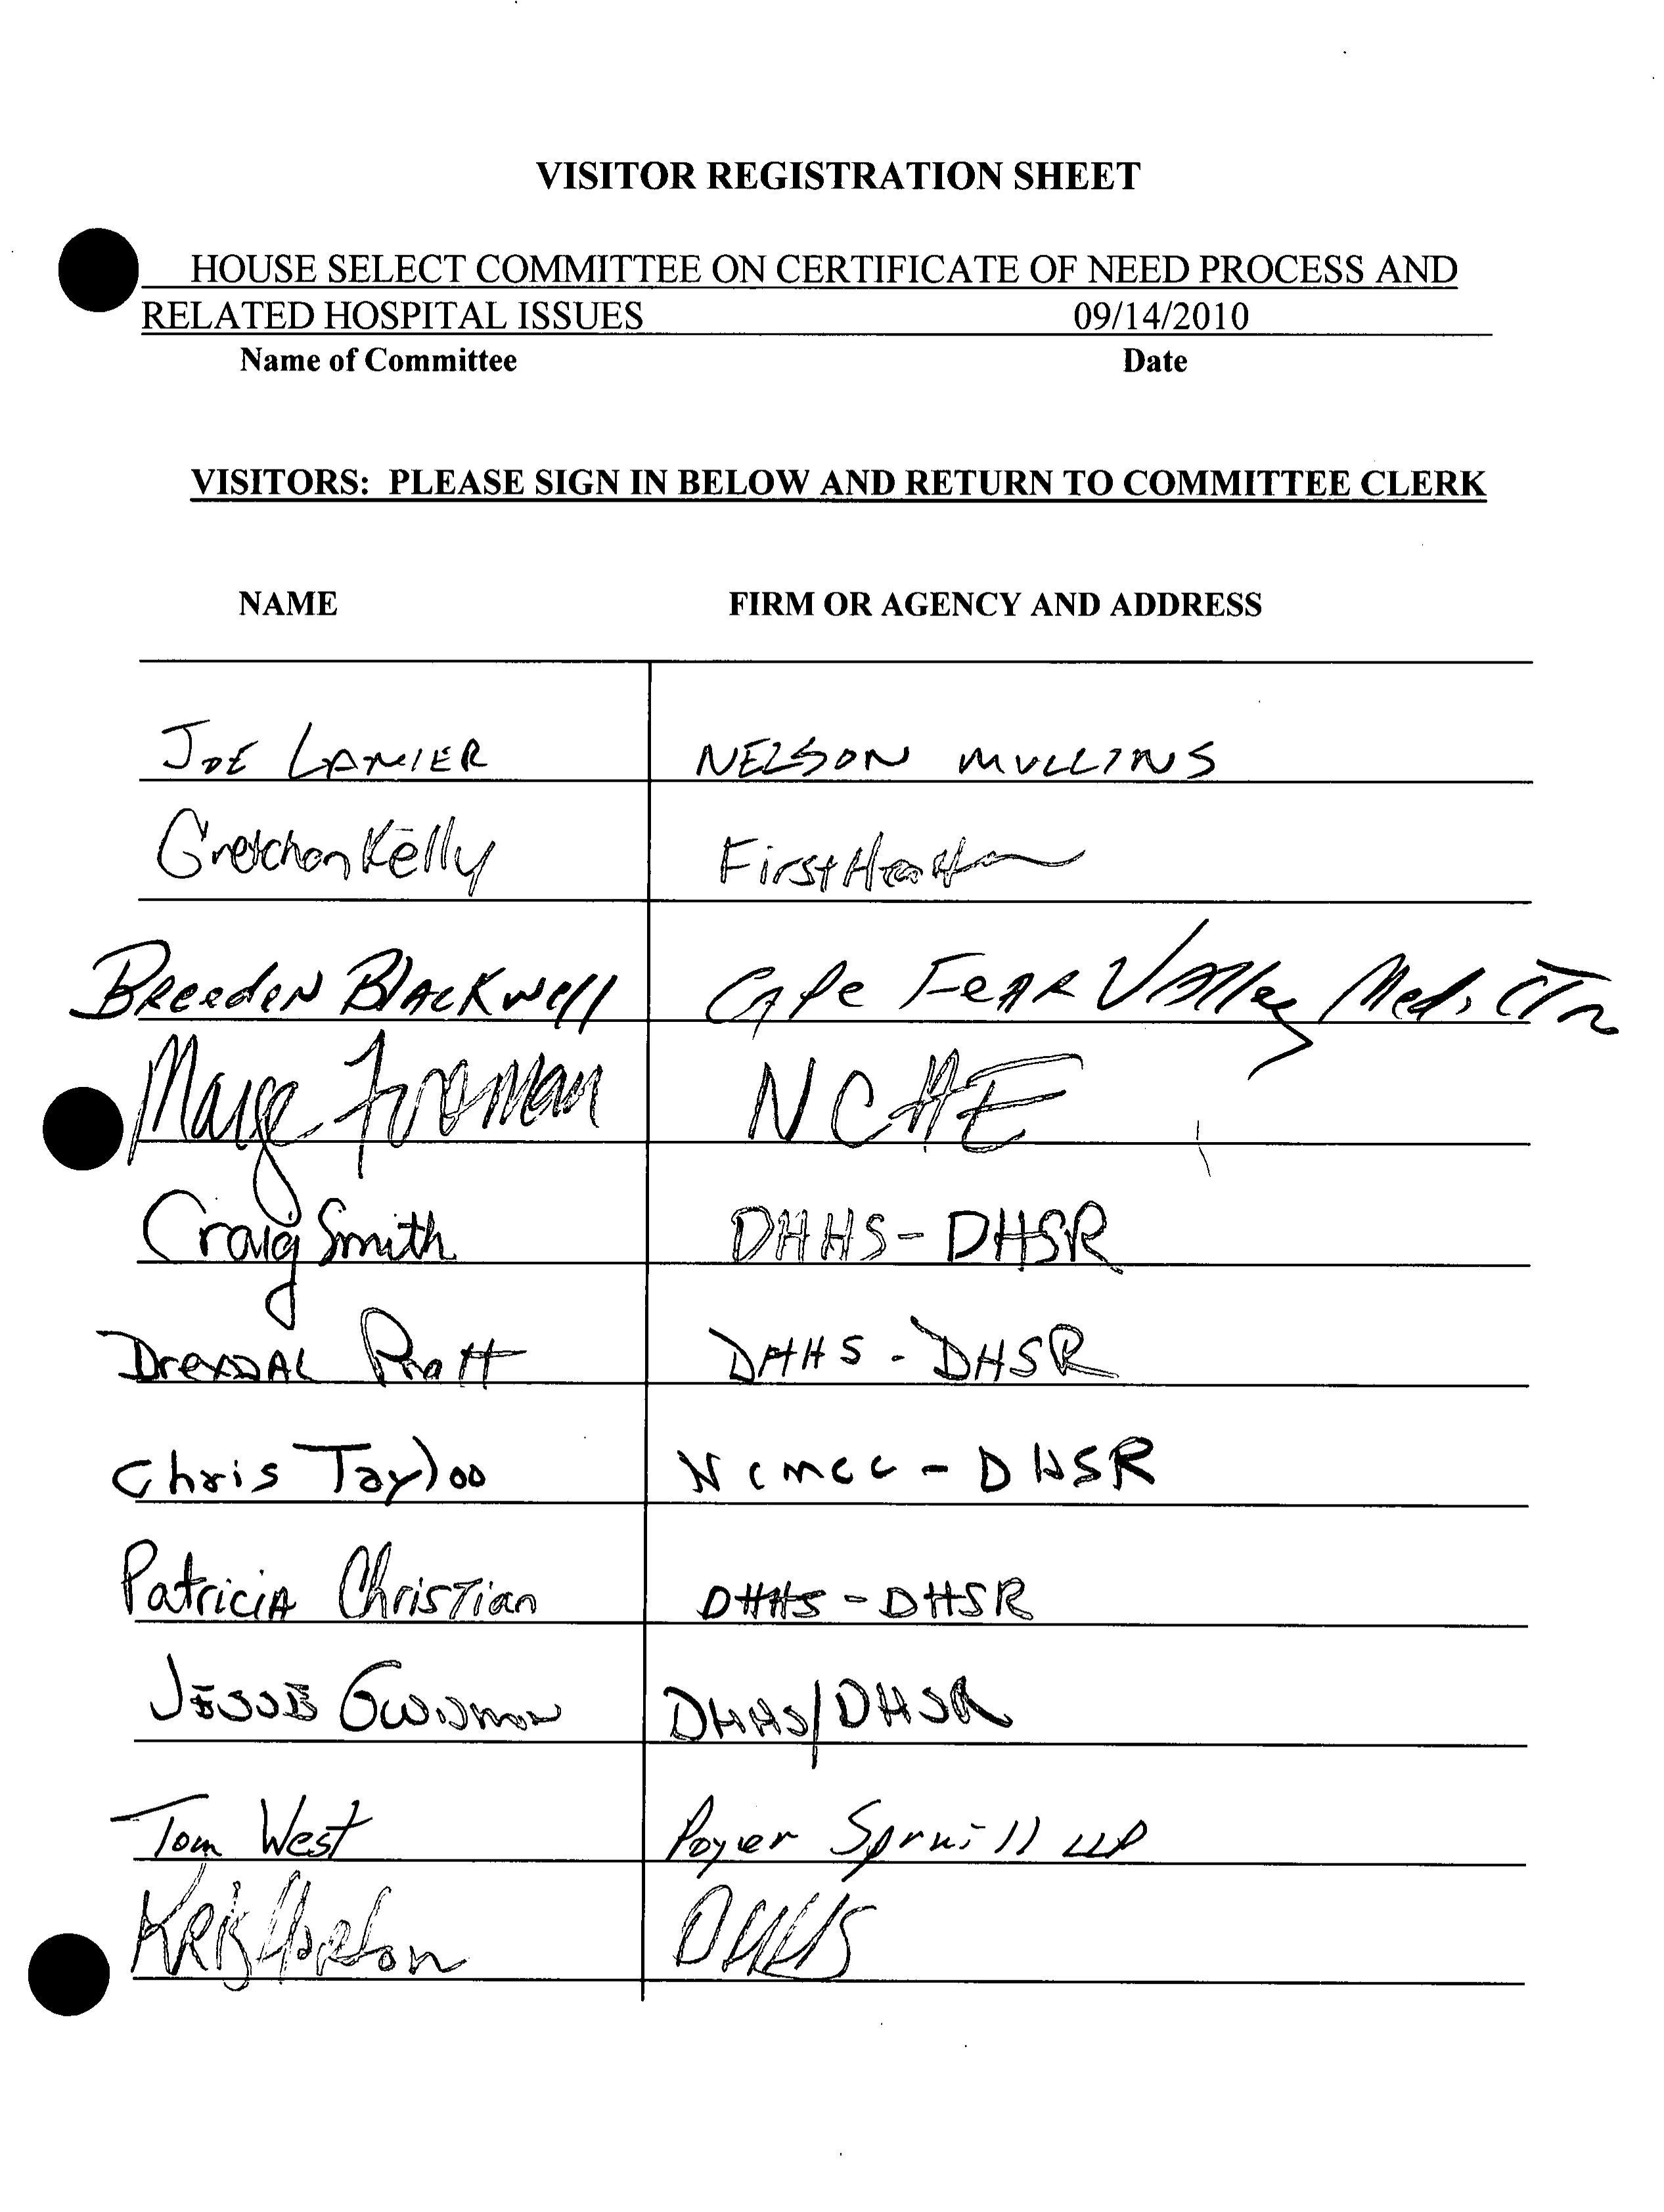 VISITOR REGISTRATION SHEET
HOUSE SELECT COMMITTEE ON CERTIFICATE OF NEED PROCESS AND
RELATED HOSPITAL ISSUES 09/14/2010
Name of Committee Date
VISITORS: PLEASE SIGN IN BELOW AND RETURN TO COMMITTEE CLERK
NAME FIRM OR AGENCY AND ADDRESS
JOE LANIER NELSON MULLINS
Gretchen Kelly FirstHealth
Breeden Blackwell Cape Fear Valley Med. CTR
Marge Foreman NCAE
Craig Smith DHHS-DHSR
Drexdal Pratt DHHS - DHSR
Chris Taylor NCMCC - DHSR
Patricia Christian DHHS - DHSR
JESSE DHHS/DHSR
Tom West Poyner Spruill LLP
Horton DHHS